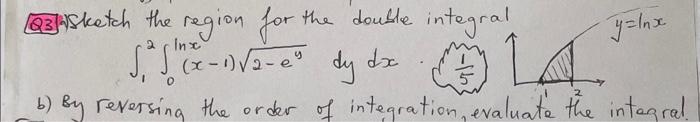 Q3 a) Sketch the region for the double integral
∫₁² ∫₀^{ln x} (x-1)√(2-e^y) dy dx . 1/5 y=ln x 1 2
b) By reversing the order of integration, evaluate the integral.